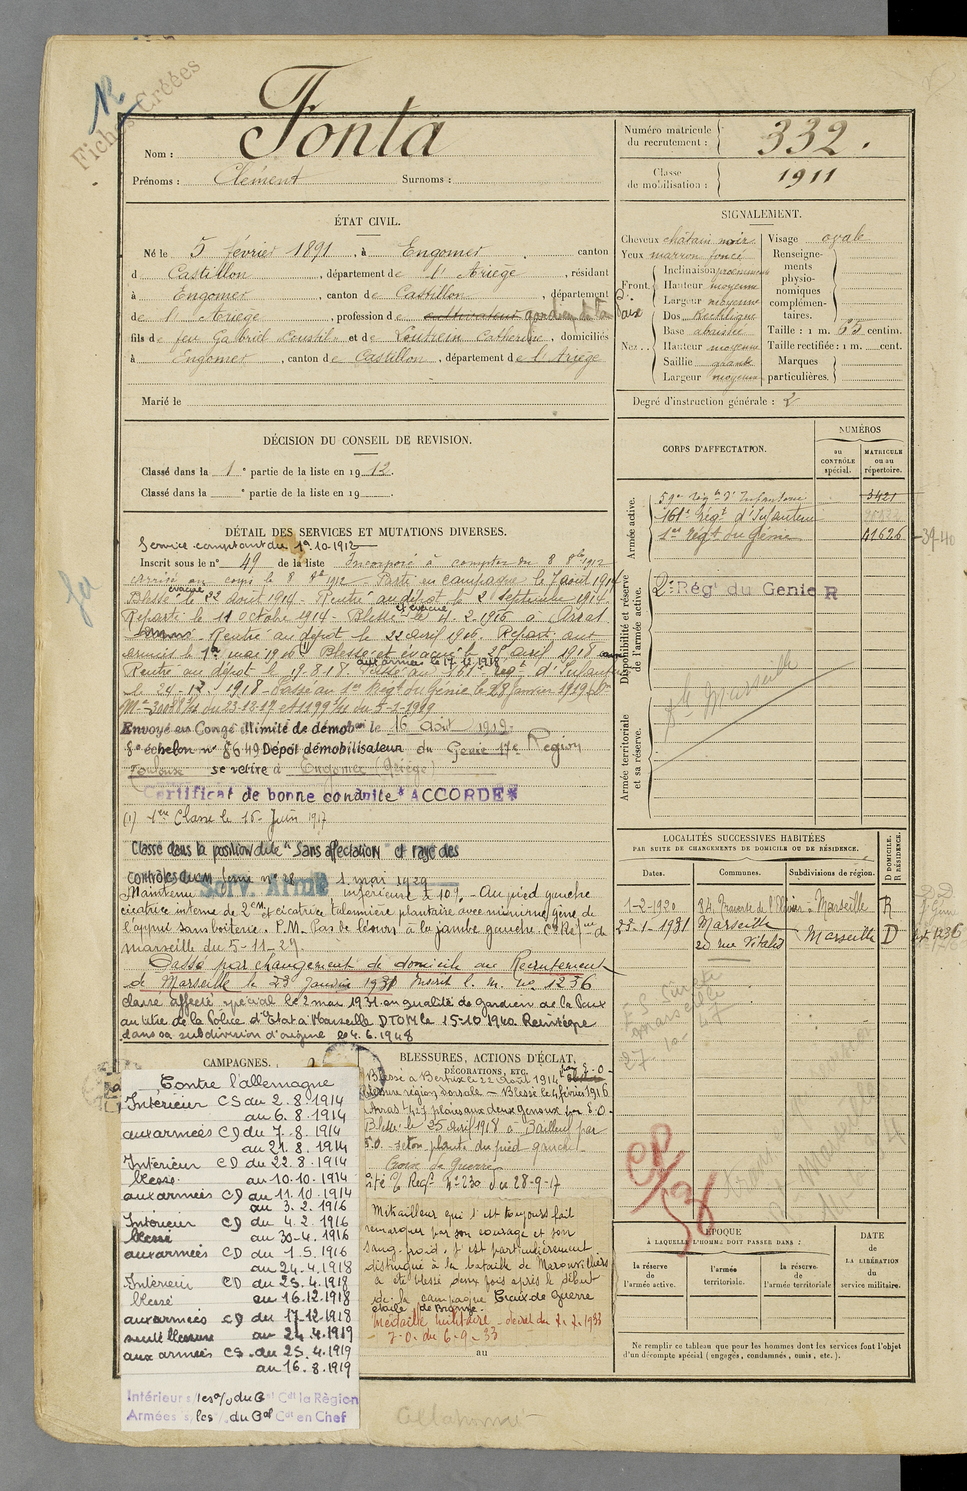 Fiches Créées
Fonta
Nom :
Prénoms : Clément Surnoms :
Numéro matricule du recrutement : 332.
Classe de mobilisation : 1911
ÉTAT CIVIL.
Né le 5 février 1891, à Engomer, canton
d Castillon, département de l'Ariège, résidant
à Engomer, canton de Castillon, département
de l'Ariège, profession de cultivateur gardien de la Paix
fils de feu Gabriel et de Catherine, domiciliés
à Engomer, canton de Castillon, département de l'Ariège
Marié le
SIGNALEMENT.
Cheveux châtain noir
Yeux marron foncé
Front. Inclinaison proéminente
Hauteur moyenne
Largeur moyenne
Nez.. Dos Rectiligne
Base abaissée
Hauteur moyenne
Saillie grande
Largeur moyenne
Visage ovale
Renseignements physionomiques complémentaires.
Taille : 1 m. 65 centim.
Taille rectifiée : 1 m. cent.
Marques particulières.
Degré d'instruction générale : 2
DÉCISION DU CONSEIL DE REVISION.
Classé dans la 1e partie de la liste en 1912.
Classé dans la e partie de la liste en 19
DÉTAIL DES SERVICES ET MUTATIONS DIVERSES.
Service comptant du 1er.10.1912
Inscrit sous le n° 49 de la liste Incorporé à compter du 8 8bre 1912
arrivé au corps le 8 8bre 1912 - Parti en campagne le 7 août 1914
Blessé évacué le 22 août 1914 - Rentré au dépôt le 2 septembre 1914
Reparti le 11 octobre 1914 - Blessé et évacué le 4.2.1916 à Arras
Rentré au dépôt le 22 avril 1916. Reparti aux
armées le 1er mai 1916 (1) Blessé et évacué le 25 avril 1918
Rentré au dépôt le 19.8.18 aux armées le 17.12.1918 Passé au 161e Régt d'Infanterie
le 24-12-1918 - Passé au 1er Régt du Génie le 28 Janvier 1919
Envoyé en Congé illimité de démobon le 16 Août 1919
8e échelon n° 8649 Dépôt démobilisateur du Génie 17e Région
Toulouse se retire à Engomer (Ariège)
Certificat de bonne conduite *ACCORDE*
(1) 1ere Classe le 16 Juin 1917
Classé dans la position dite "Sans affectation" et rayé des
contrôles 1 mai 1929
Maintenu Serv. Armé inférieure à 10% - Au pied gauche
cicatrice interne de 2cm et cicatrice talonnière plantaire avec minime gêne de
l'appui sans boiterie. P.M. Pas de lésions à la jambe gauche. Con Réf me de
Marseille du 5-11-27.
Passé par changement de domicile au Recrutement
de Marseille le 23 Janvier 1931 Inscrit l. m. no 1236
classé affecté spécial le 2 mai 1931 en qualité de gardien de la Paix
au titre de la Police d'Etat à Marseille DTOM le 15-10-1940 Réintégré
dans sa subdivision d'origine le 4.6.1948
CORPS D'AFFECTATION.
NUMÉROS
au CONTRÔLE spécial.
MATRICULE ou au répertoire.
Armée active.
59e Régt d'Infanterie 3421
161e Régt d'Infanterie
1er Régt du Génie 41626
Disponibilité et réserve de l'armée active.
2e Rég' du Genie R
Marseille
Armée territoriale et sa réserve.
LOCALITÉS SUCCESSIVES HABITÉES
PAR SUITE DE CHANGEMENTS DE DOMICILE OU DE RÉSIDENCE.
Dates. Communes. Subdivisions de région. D DOMICILE. R RÉSIDENCE.
1-2-1920 84, Traverse de l'Olivier à Marseille R
23-1-1931 Marseille Marseille D
20 rue Vitalis
1236
CAMPAGNES.
Contre l'allemagne
Intérieur CS du 2.8.1914
au 6.8.1914
aux armées CD du 7.8.1914
au 21.8.1914
Intérieur CD du 22.8.1914
blessé au 10.10.1914
aux armées CD du 11.10.1914
au 3.2.1916
Intérieur CD du 4.2.1916
blessé au 30.4.1916
aux armées CD du 1.5.1916
au 24.4.1918
Intérieur CD du 25.4.1918
blessé au 16.12.1918
aux armées CD du 17.12.1918
au 24.4.1919
aux armées CS du 25.4.1919
au 16.8.1919
Intérieur s/les % du Gal Cdt la Région
Armées s/les % du Gal Cdt en Chef
BLESSURES, ACTIONS D'ÉCLAT,
DÉCORATIONS, ETC.
Blessé à Bertrix le 22 août 1914
blessure région dorsale - Blessé le 4 février 1916
Arras plaies aux deux genoux par E.O -
Blessé le 25 avril 1918 à Bailleul par
E.O - séton plante du pied gauche
Croix de Guerre
Cité O/ Regt N° 230 du 28-9-17
Mitrailleur qui s'est toujours fait
remarquer par son courage et son
sang-froid, s'est particulièrement
distingué à la bataille de
a été blessé deux fois après le début
de la campagne Croix de Guerre
étoile de Bronze.
Médaille militaire - décret du
J.O. du 6-9-33
au
ÉPOQUE
À LAQUELLE L'HOMME DOIT PASSER DANS :
la réserve de l'armée active.
l'armée territoriale.
la réserve de l'armée territoriale
DATE de LA LIBÉRATION du service militaire.
Ne remplir ce tableau que pour les hommes dont les services font l'objet
d'un décompte spécial (engagés, condamnés, omis, etc.).